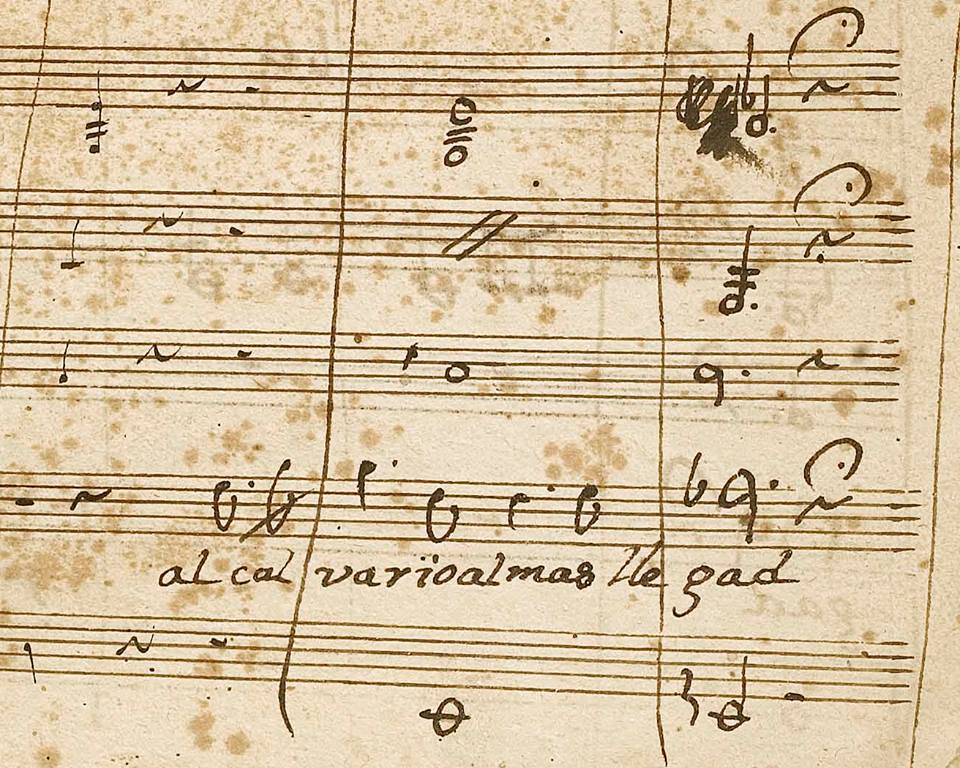 al cal varïoalmas lle gad